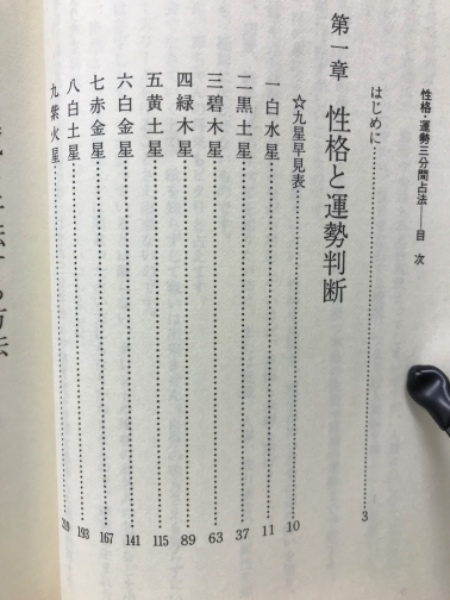 性格・運勢三分間占法――目次
はじめに……………3
第一章 性格と運勢判断
☆九星早見表……………10
一白水星……………11
二黒土星……………37
三碧木星……………63
四緑木星……………89
五黄土星……………115
六白金星……………141
七赤金星……………167
八白土星……………193
九紫火星……………219